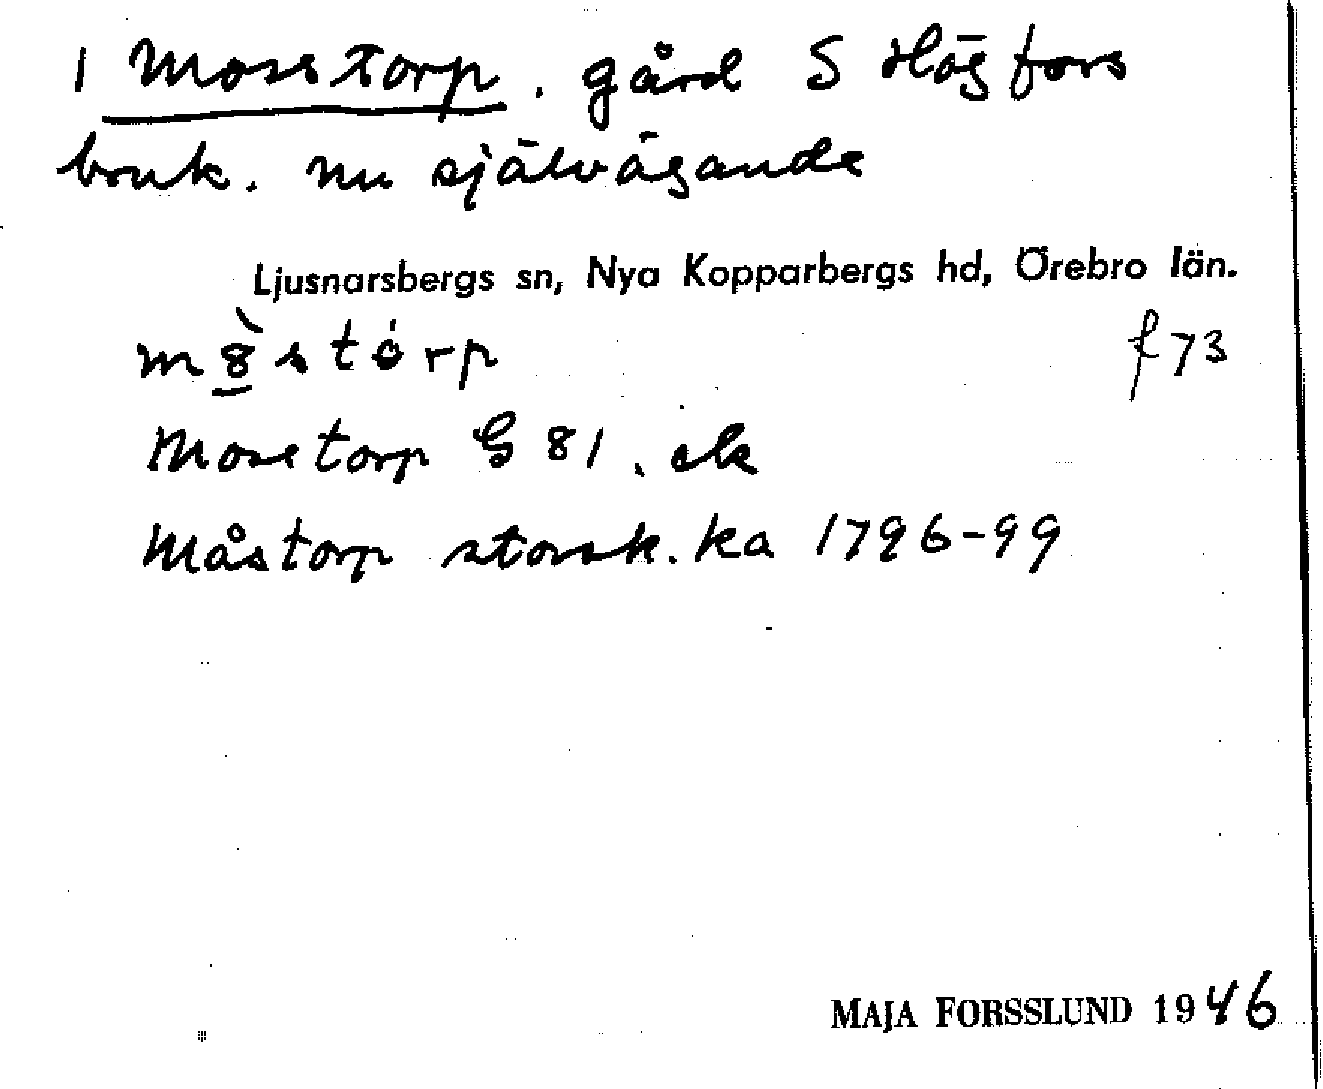 1 Mosstorp. gård S Högfors
bruk. nu självägande
Ljusnarsbergs sn, Nya Kopparbergs hd, Örebro län.
m8̀stórp f 73
Mosetorp G 81. ek
Måstorp storsk. ka 1796-99
MAJA FORSSLUND 1946